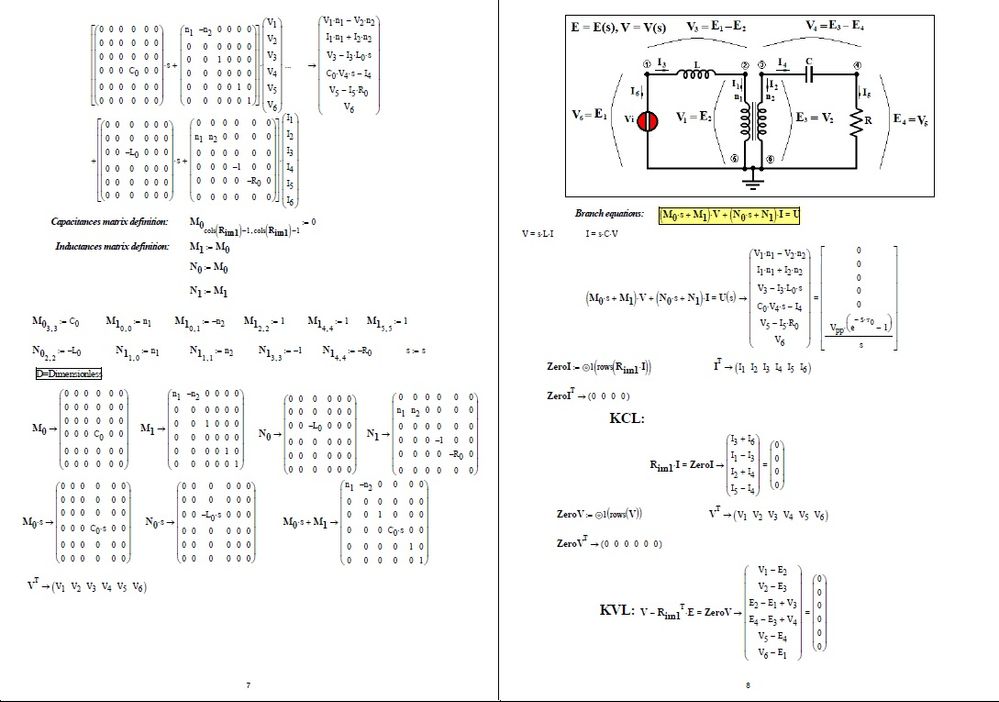 [[0 0 0 0 0 0; 0 0 0 0 0 0; 0 0 0 0 0 0; 0 0 0 C0 0 0; 0 0 0 0 0 0; 0 0 0 0 0 0]·s + [n1 −n2 0 0 0 0; 0 0 0 0 0 0; 0 0 1 0 0 0; 0 0 0 0 0 0; 0 0 0 0 1 0; 0 0 0 0 0 1]]·(V1 V2 V3 V4 V5 V6) ... → (V1·n1 − V2·n2; I1·n1 + I2·n2; V3 − I3·L0·s; C0·V4·s − I4; V5 − I5·R0; V6)
+ [[0 0 0 0 0 0; 0 0 0 0 0 0; 0 0 −L0 0 0 0; 0 0 0 0 0 0; 0 0 0 0 0 0; 0 0 0 0 0 0]·s + [0 0 0 0 0 0; n1 n2 0 0 0 0; 0 0 0 0 0 0; 0 0 0 −1 0 0; 0 0 0 0 −R0 0; 0 0 0 0 0 0]]·(I1 I2 I3 I4 I5 I6)
Capacitances matrix definition: M0 cols(Rim1)−1, cols(Rim1)−1 := 0
Inductances matrix definition: M1 := M0
N0 := M0
N1 := M1
M0 3,3 := C0 M1 0,0 := n1 M1 0,1 := −n2 M1 2,2 := 1 M1 4,4 := 1 M1 5,5 := 1
N0 2,2 := −L0 N1 1,0 := n1 N1 1,1 := n2 N1 3,3 := −1 N1 4,4 := −R0 s := s
D=Dimensionless
M0 → [0 0 0 0 0 0; 0 0 0 0 0 0; 0 0 0 0 0 0; 0 0 0 C0 0 0; 0 0 0 0 0 0; 0 0 0 0 0 0] M1 → [n1 −n2 0 0 0 0; 0 0 0 0 0 0; 0 0 1 0 0 0; 0 0 0 0 0 0; 0 0 0 0 1 0; 0 0 0 0 0 1] N0 → [0 0 0 0 0 0; 0 0 0 0 0 0; 0 0 −L0 0 0 0; 0 0 0 0 0 0; 0 0 0 0 0 0; 0 0 0 0 0 0] N1 → [0 0 0 0 0 0; n1 n2 0 0 0 0; 0 0 0 0 0 0; 0 0 0 −1 0 0; 0 0 0 0 −R0 0; 0 0 0 0 0 0]
M0·s → [0 0 0 0 0 0; 0 0 0 0 0 0; 0 0 0 0 0 0; 0 0 0 C0·s 0 0; 0 0 0 0 0 0; 0 0 0 0 0 0] N0·s → [0 0 0 0 0 0; 0 0 0 0 0 0; 0 0 −L0·s 0 0 0; 0 0 0 0 0 0; 0 0 0 0 0 0; 0 0 0 0 0 0] M0·s + M1 → [n1 −n2 0 0 0 0; 0 0 0 0 0 0; 0 0 1 0 0 0; 0 0 0 C0·s 0 0; 0 0 0 0 1 0; 0 0 0 0 0 1]
V^T → (V1 V2 V3 V4 V5 V6)
7
E = E(s), V = V(s) V3 = E1−E2 V4 = E3− E4
① I3 L ② ③ I4 C ④
I6 I1 I2 I5
n1 n2
V6 = E1 Vi V1 = E2 E3 = V2 R E4 = V5
⑥ ⑥
Branch equations: (M0·s + M1)·V + (N0·s + N1)·I = U
V = s·L·I I = s·C·V
(M0·s + M1)·V + (N0·s + N1)·I = U(s) → (V1·n1 − V2·n2; I1·n1 + I2·n2; V3 − I3·L0·s; C0·V4·s − I4; V5 − I5·R0; V6) = [0; 0; 0; 0; 0; Vpp·(e^(−s·τ0) − 1)/s]
ZeroI := ◎1(rows(Rim1·I)) I^T → (I1 I2 I3 I4 I5 I6)
ZeroI^T → (0 0 0 0)
KCL:
Rim1·I = ZeroI → (I3 + I6; I1 − I3; I2 + I4; I5 − I4) = (0; 0; 0; 0)
ZeroV := ◎1(rows(V)) V^T → (V1 V2 V3 V4 V5 V6)
ZeroV^T → (0 0 0 0 0 0)
KVL: V − Rim1^T·E = ZeroV → (V1 − E2; V2 − E3; E2 − E1 + V3; E4 − E3 + V4; V5 − E4; V6 − E1) = (0; 0; 0; 0; 0; 0)
8